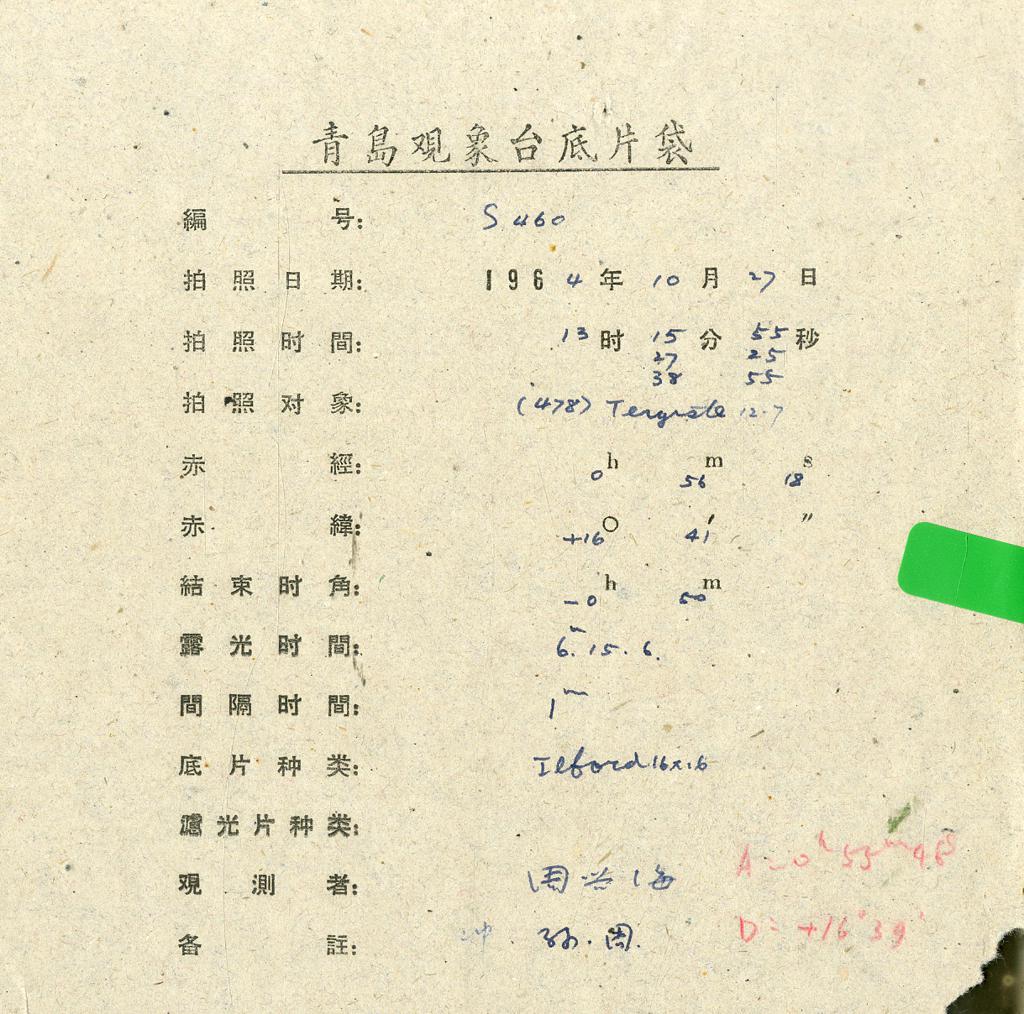 青島观象台底片袋
編号: S 460
拍照日期: 1964年10月27日
拍照时間: 13时15分55秒
27 25
38 55
拍照对象: (478) Tergeste 12.7
赤經: 0h 56m 18s
赤緯: +16° 41′ ″
結束时角: -0h 50m
露光时間: 6m. 15. 6.
間隔时間: 1m
底片种类: Ilford 16x16
濾光片种类:
A = 0h 55m 48s
观測者: 周兴海
备註: 冲 孙.周.
D = +16° 39′